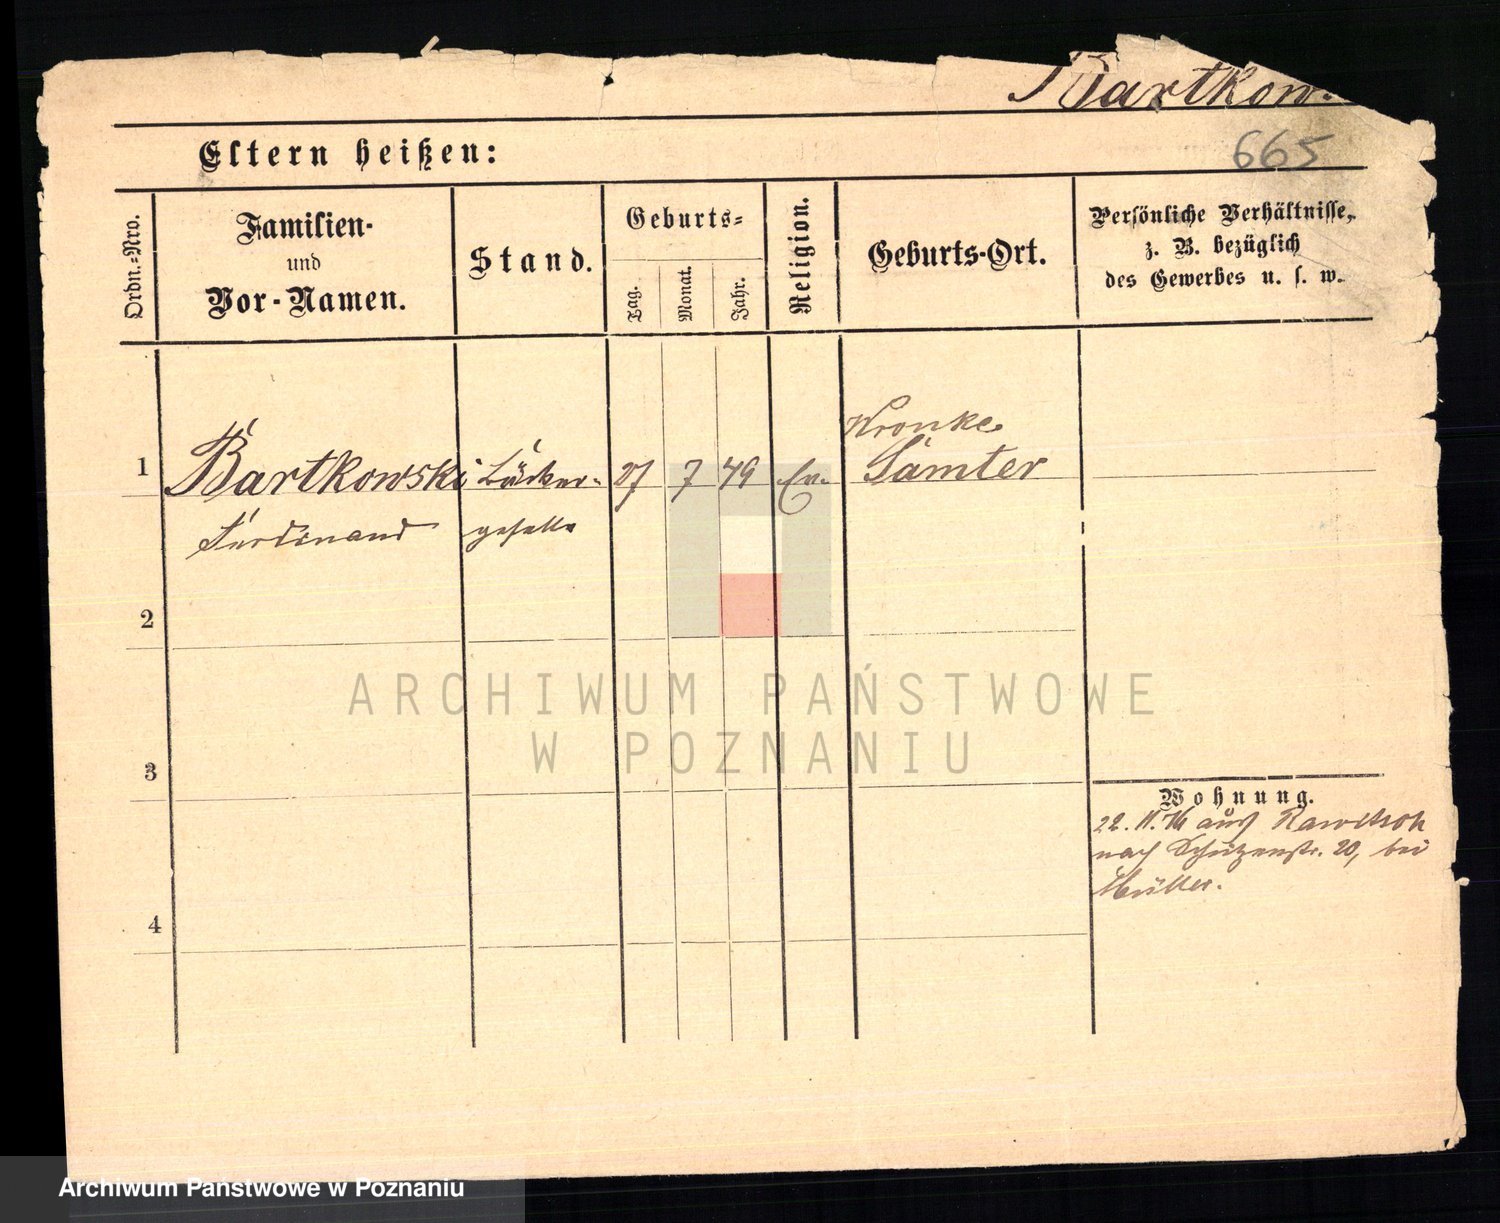 Bartkow
665
Eltern heißen:
Ordn.-Nro.
Familien-
und
Vor-Namen.
Stand.
Geburts-
Tag.
Monat.
Jahr.
Religion.
Geburts-Ort.
Persönliche Verhältnisse,
z. B. bezüglich
des Gewerbes u. s. w.
Wronke
1 Bartkowski Bäcker- 27 7 49 Ev. Samter
Ferdinand geselle
2
3
4
Wohnung.
22. 11. 76 aus Rawitsch
nach Schützenstr. 20, bei
Müller.
ARCHIWUM PAŃSTWOWE
W POZNANIU
Archiwum Państwowe w Poznaniu